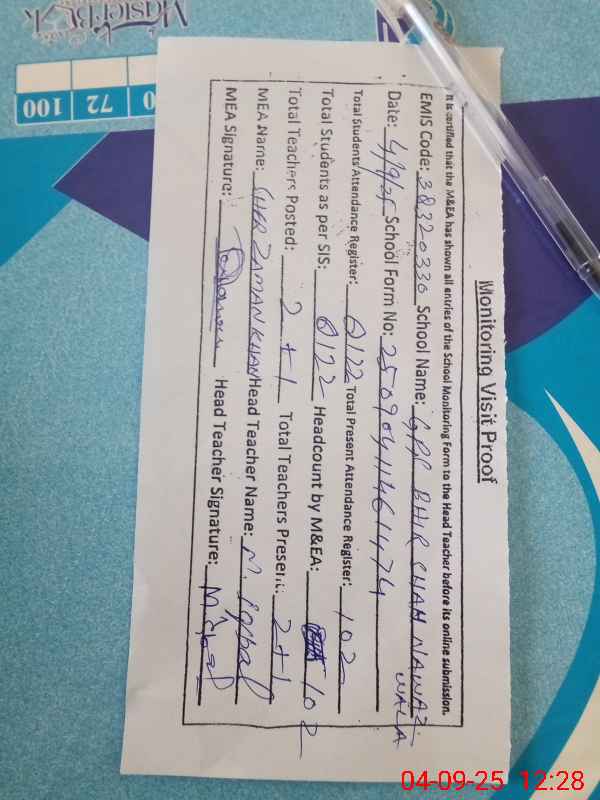 Monitoring Visit Proof
It is certified that the M&EA has shown all entries of the School Monitoring Form to the Head Teacher before its online submission.
EMIS Code: 38320330 School Name: GPS BHIR SHAH NAWAZ WALA
Date: 4/9/25 School Form No: 250904114614 74
Total Students Attendance Register: 122 Total Present Attendance Register: 102
Total Students as per SIS: 122 Headcount by M&EA: 102
Total Teachers Posted: 2+1 Total Teachers Present: 2+1
MEA Name: SHER ZAMAN KHAN Head Teacher Name: M. Iqbal
MEA Signature: Head Teacher Signature: M iqbal
MasterBook
72 100
04-09-25 12:28